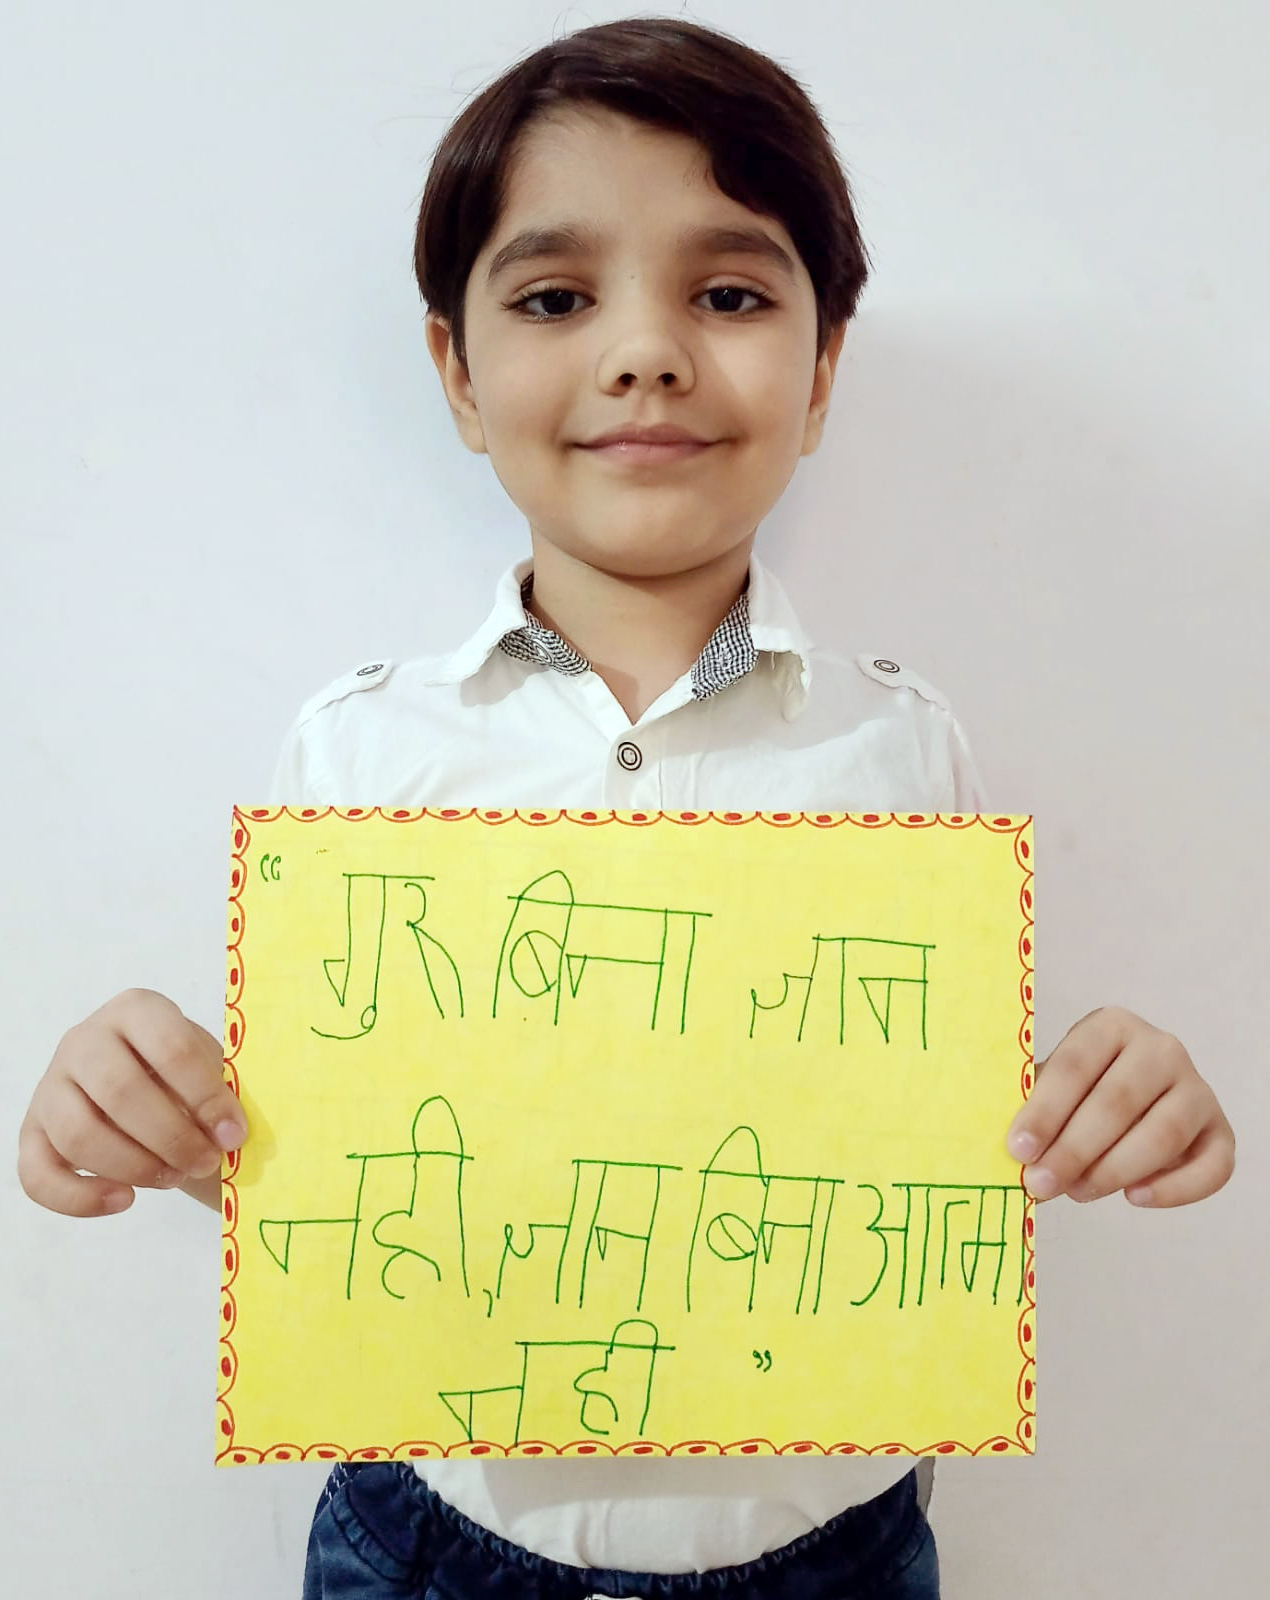 “ गुरु बिना ज्ञान
नही, ज्ञान बिना आत्मा
नही ”